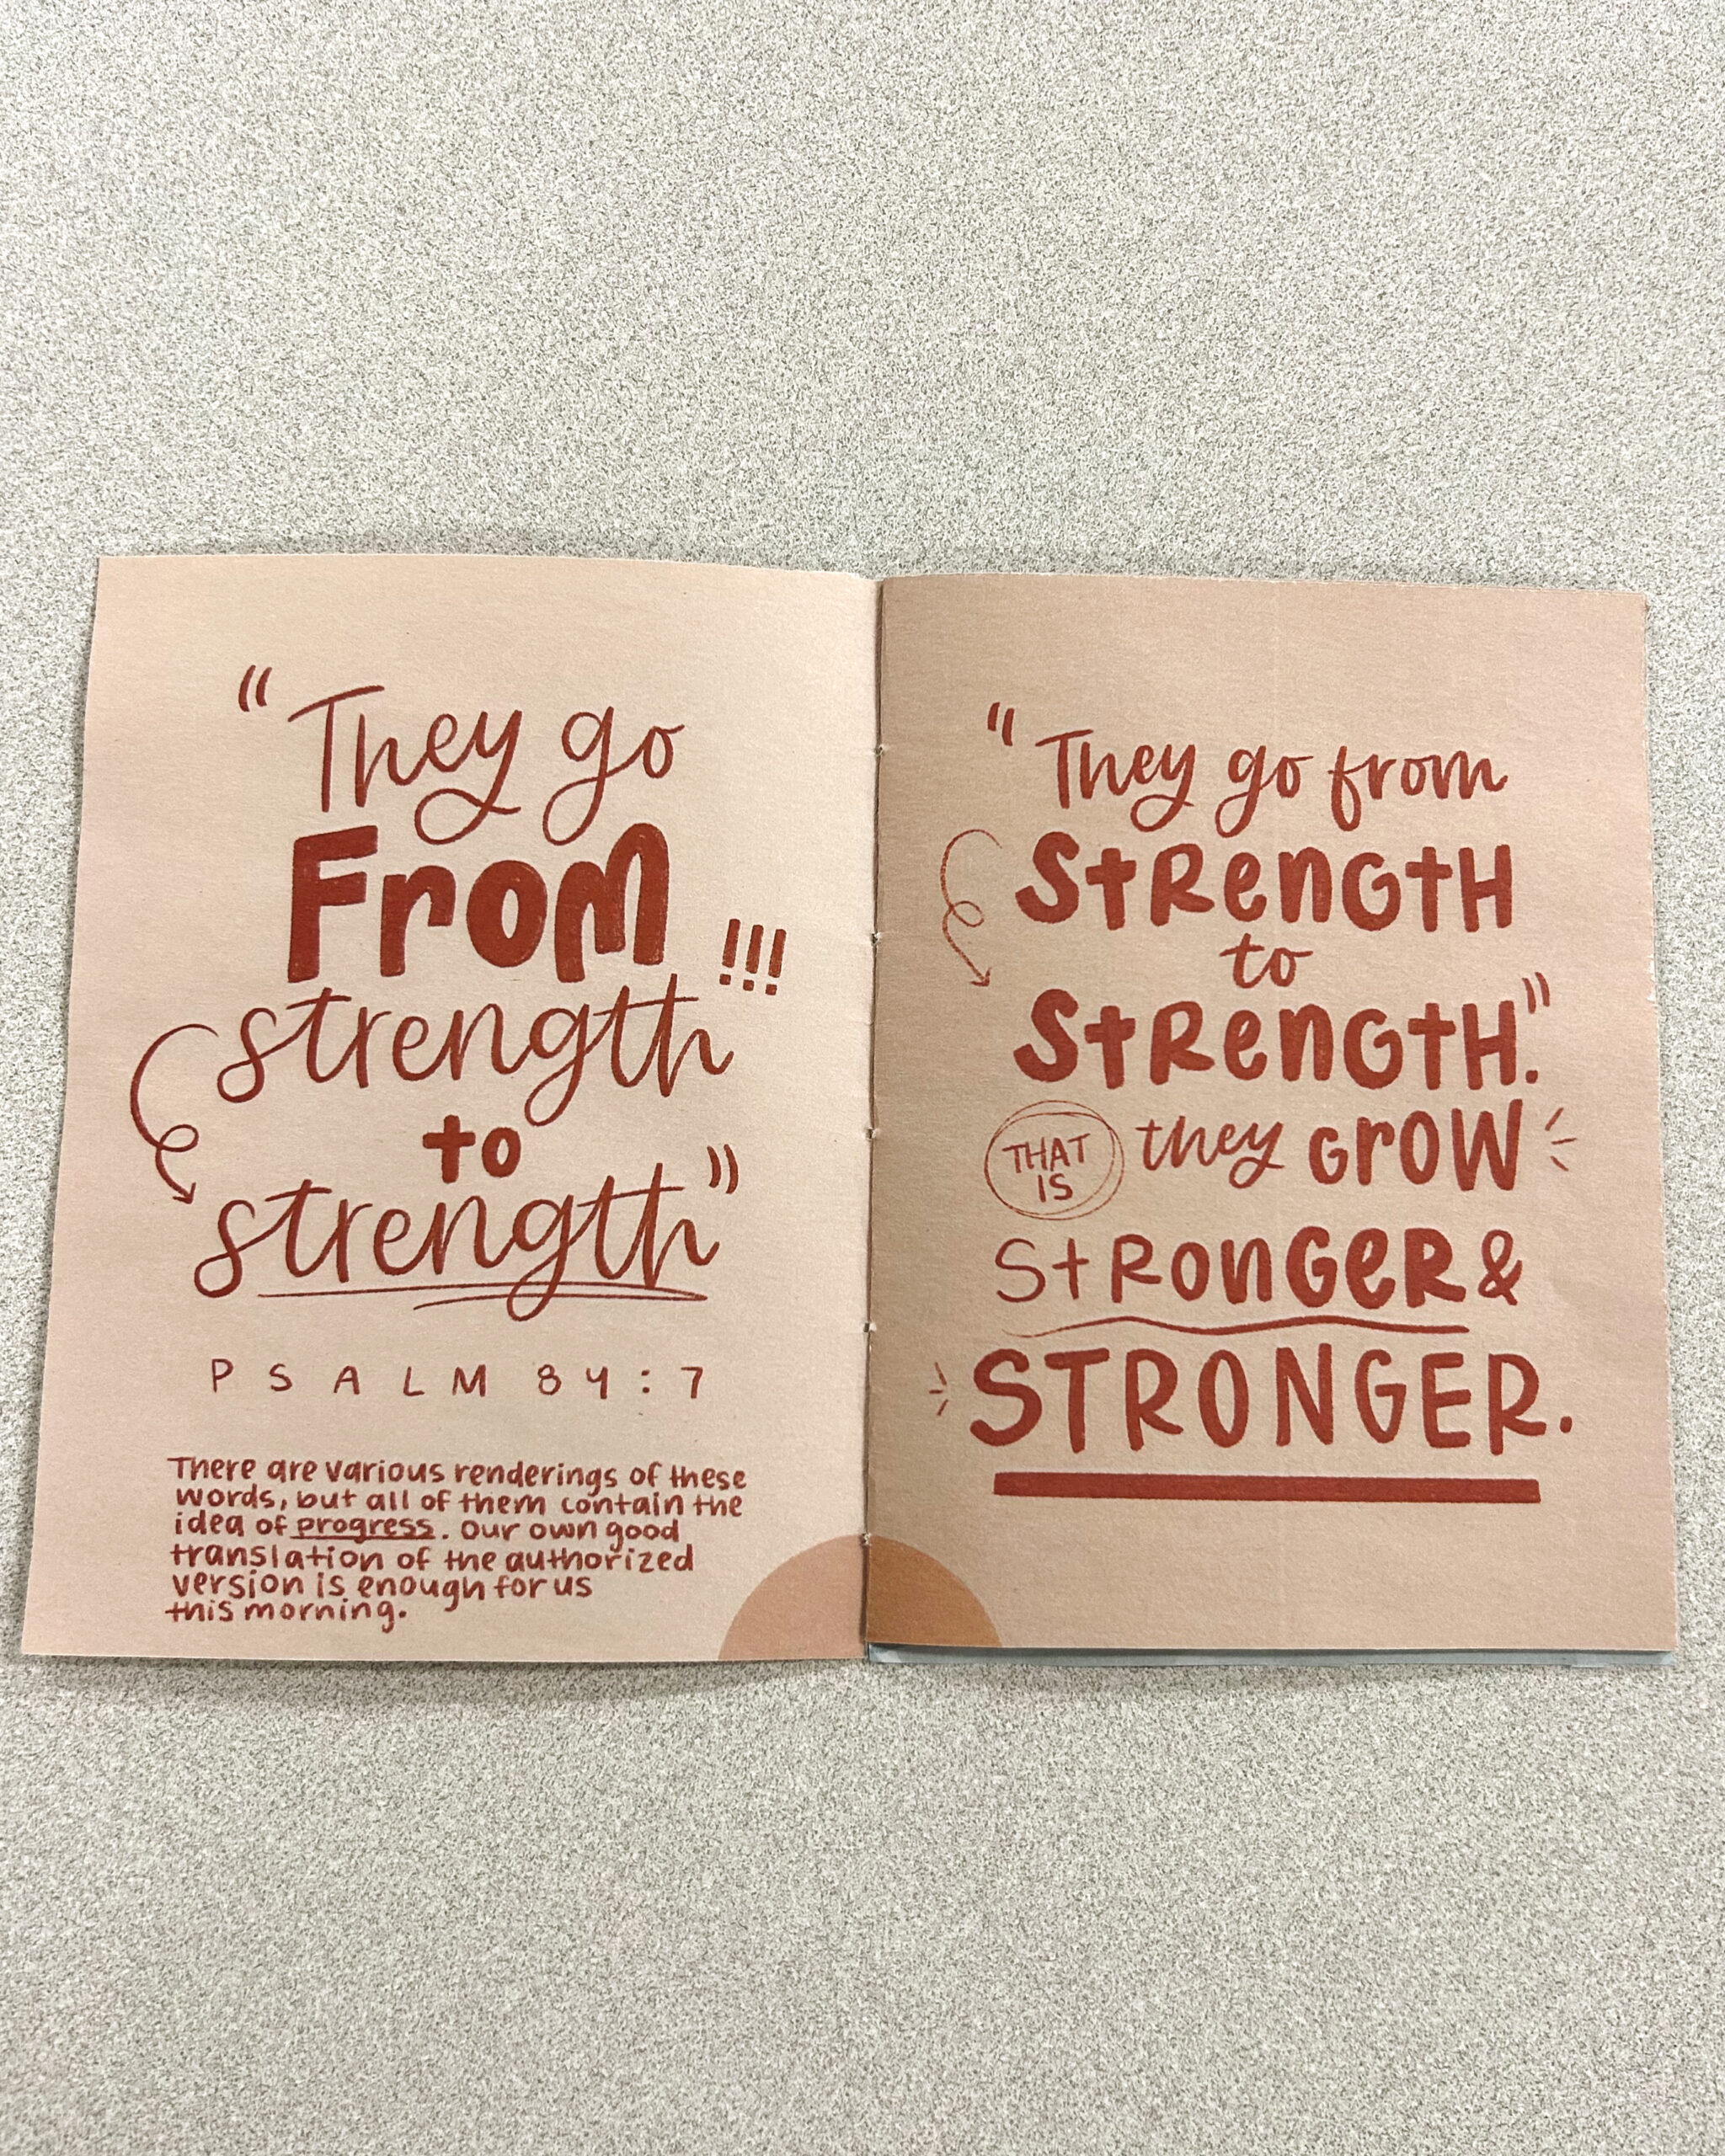 "They go
From
strength!!!
to
strength"
PSALM 84:7
There are various renderings of these
words, but all of them contain the
idea of progress. Our own good
translation of the authorized
version is enough for us
this morning.
"They go from
STRENGTH
to
STRENGTH."
THAT
IS
they GROW
STRONGER &
STRONGER.